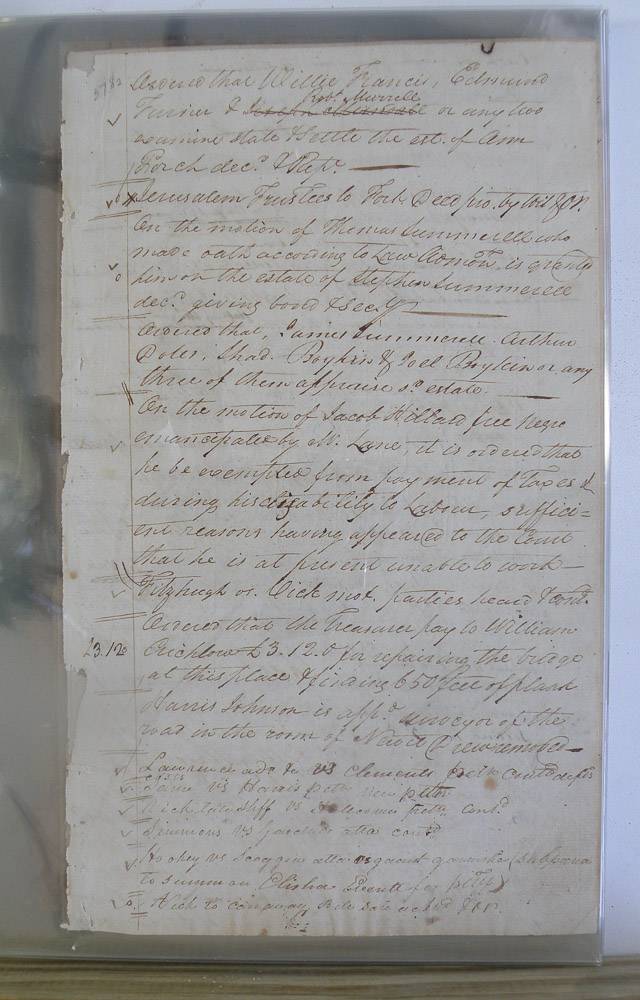 Ordered that Willie Francis, Edmund
Robt. Murrell
Turner & or any two
examine state & settle the est. of Ann
Porch decd. & Repr.
Jerusalem Trustees to Fort Deed pro. by wit & OR.
On the motion of Thomas Summerell who
made oath according to Law Admon. is granted
him on the estate of Stephen Summerell
decd. giving bond & Secy.
Ordered that James Summerell, Arthur
Doles, Shad. Boykin & Joel Boykin or any
three of them appraise sd. estate.
On the motion of Jacob Hillard free negro
emancipated by Lane, it is ordered that
he be exempted from payment of Taxes &
during his disability to Labour, suffici=
ent reasons having appeared to the Court
that he is at present unable to work
Fitzhugh vs. Dick mot. parties heard & cont.
Ordered that the Treasurer pay to William
£3.12.0 Crichlow £3.12.0 for repairing the bridge
at this place & finding 650 feet of plank
Harris Johnson is appd. surveyor of the
road in the room of Newit Drew removed
Lawrence adr &c vs Clements petn
Same vs Harris petn new petn
vs petn contd.
Simmons vs attat contd.
vs Scoggin attat vs garnishee (Subpoena
to summon Elisha for petn)
to ackd & OR.